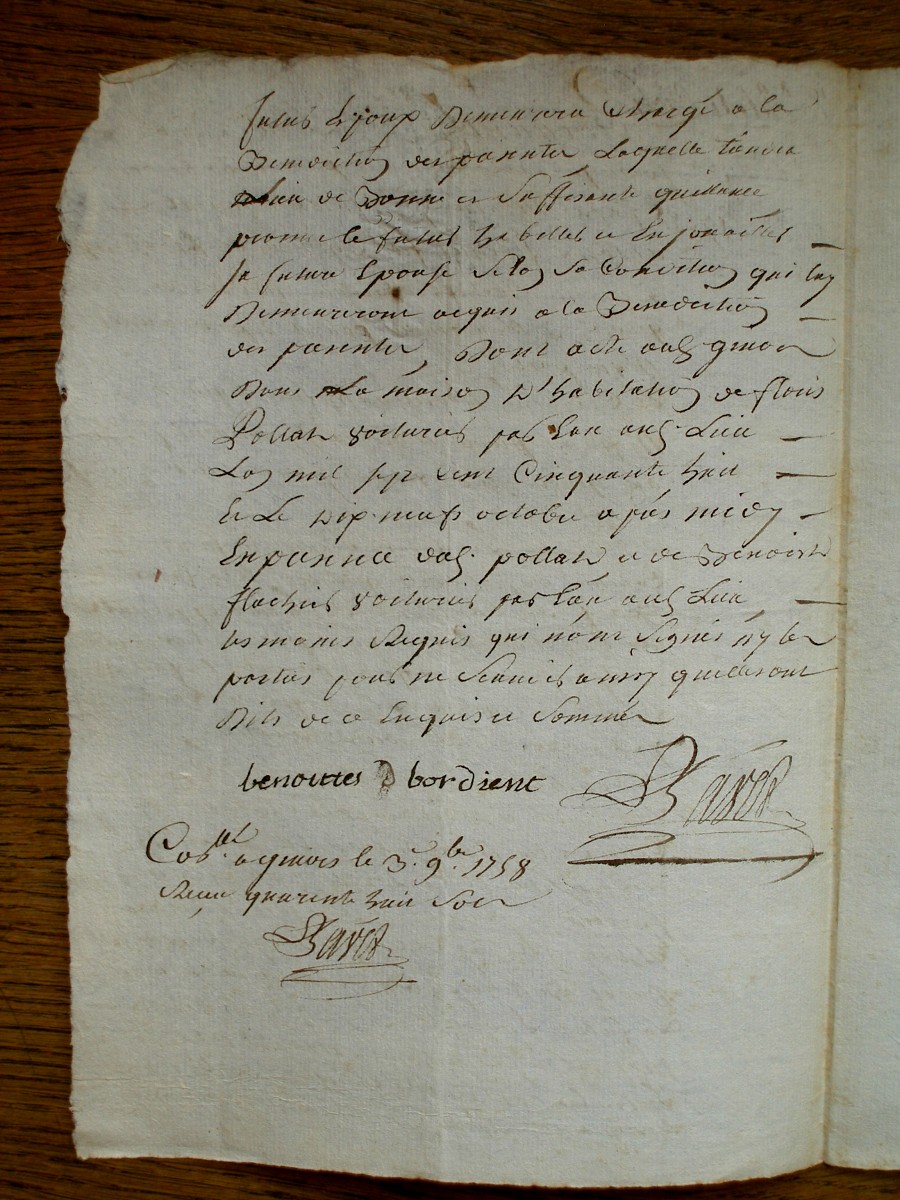 futur Epoux Demeurera Chargé a la
Benediction des parents Laquelle tiendra
Lieu de Bonne et Suffisante quittance
promet le futur habiller et Enjoailler
Sa future Epouse Selon Sa Condition qui luy
Demeureront acquis a la Benediction
des parents, Dont acte aud. givors
Dans La maison D'habitation de fleuris
Pollat voiturier par Eau aud. Lieu
Lan mil sept cent Cinquante huit
Et Le Dix neufs octobre apres midy
En pance dud. pollat et de Benoist
flachier voiturier par Eau aud. Lieu
temoins Requis qui n'ont Signés ny les
parties pour ne Scavoir ainsy quils ont
Dits de ce Enquis et Sommés
benoittes bordient
Ravet
Co. a givors le 3e. 9bre. 1758
Recu quarente huit Sols
Ravet